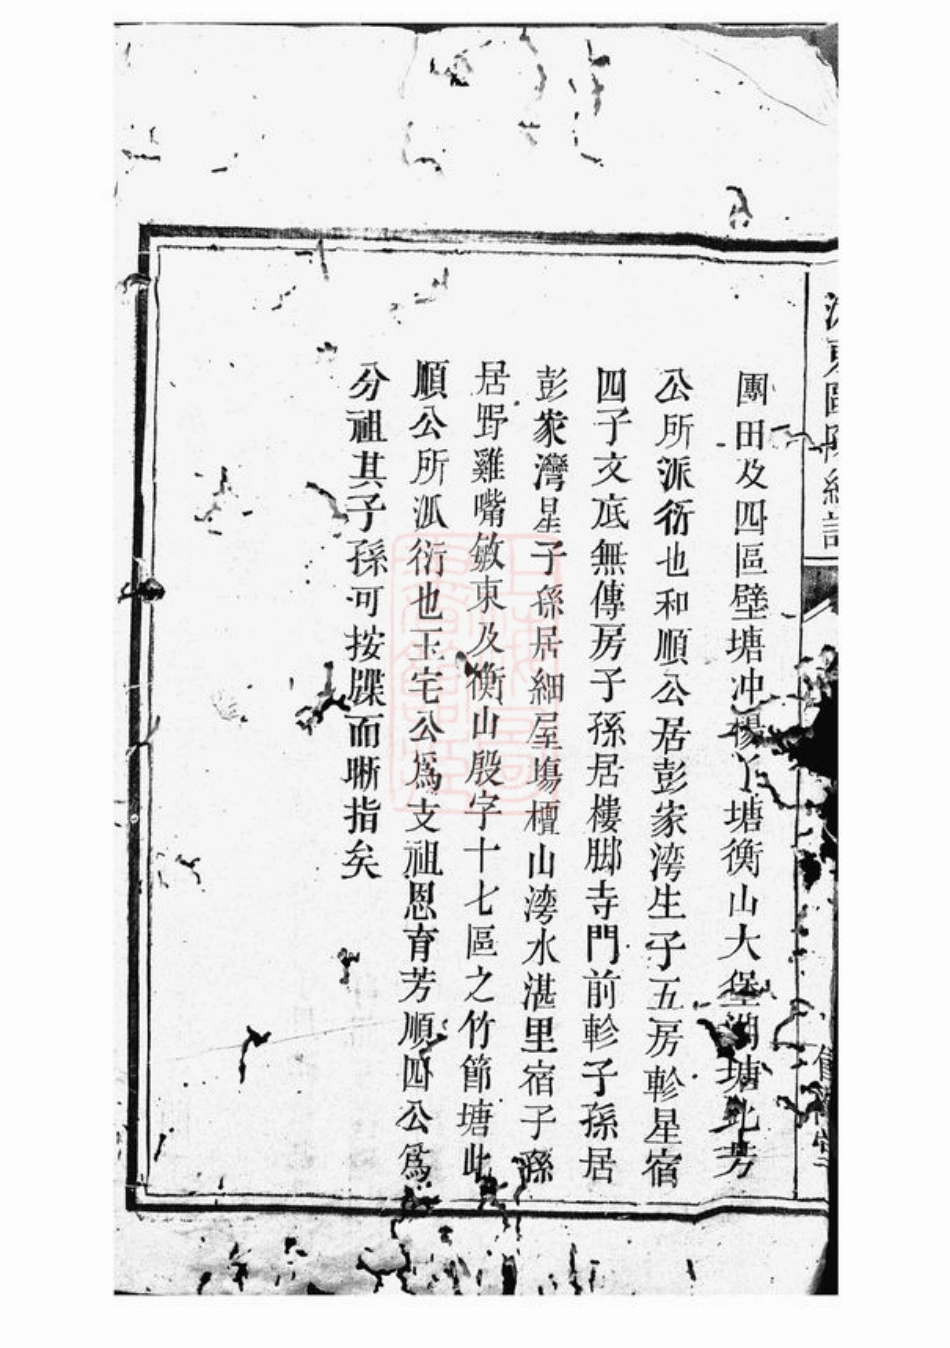 團田及四區壁塘冲楊丫塘衡山大堡湖塘此芳
公所派衍也和順公居彭家湾生子五房軫星宿
四子文底無傳房子孫居樓脚寺門前軫子孫居
彭家灣星子孫居細屋塲檀山湾水湛里宿子孫
居野雞嘴敏東及衡山殷字十七區之竹節塘此
順公所派衍也玉宅公爲支祖恩育芳順四公爲
分祖其子孫可按牒而晣指矣